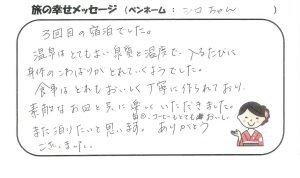 旅の幸せメッセージ (ペンネーム : シロちゃん )
3回目の宿泊でした。
温泉はとてもよい泉質と温度で、入るたびに
身体のこわばりがとれていくようでした。
食事はとれもおいしく丁寧に作られており、
素敵なお皿と共に楽しくいただきました。
食后のコーヒーもとてもおいしい
また泊りたいと思います。ありがとう
ございました。